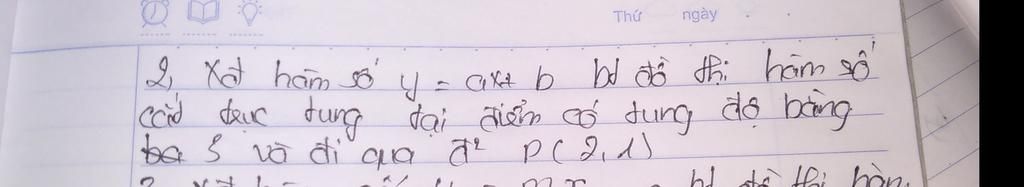 Thứ ngày
2, Xét hàm số y = ax + b bd đồ thị hàm số
cắt trục tung tại điểm có tung độ bằng
5 và đi qua đ² P(2,1)